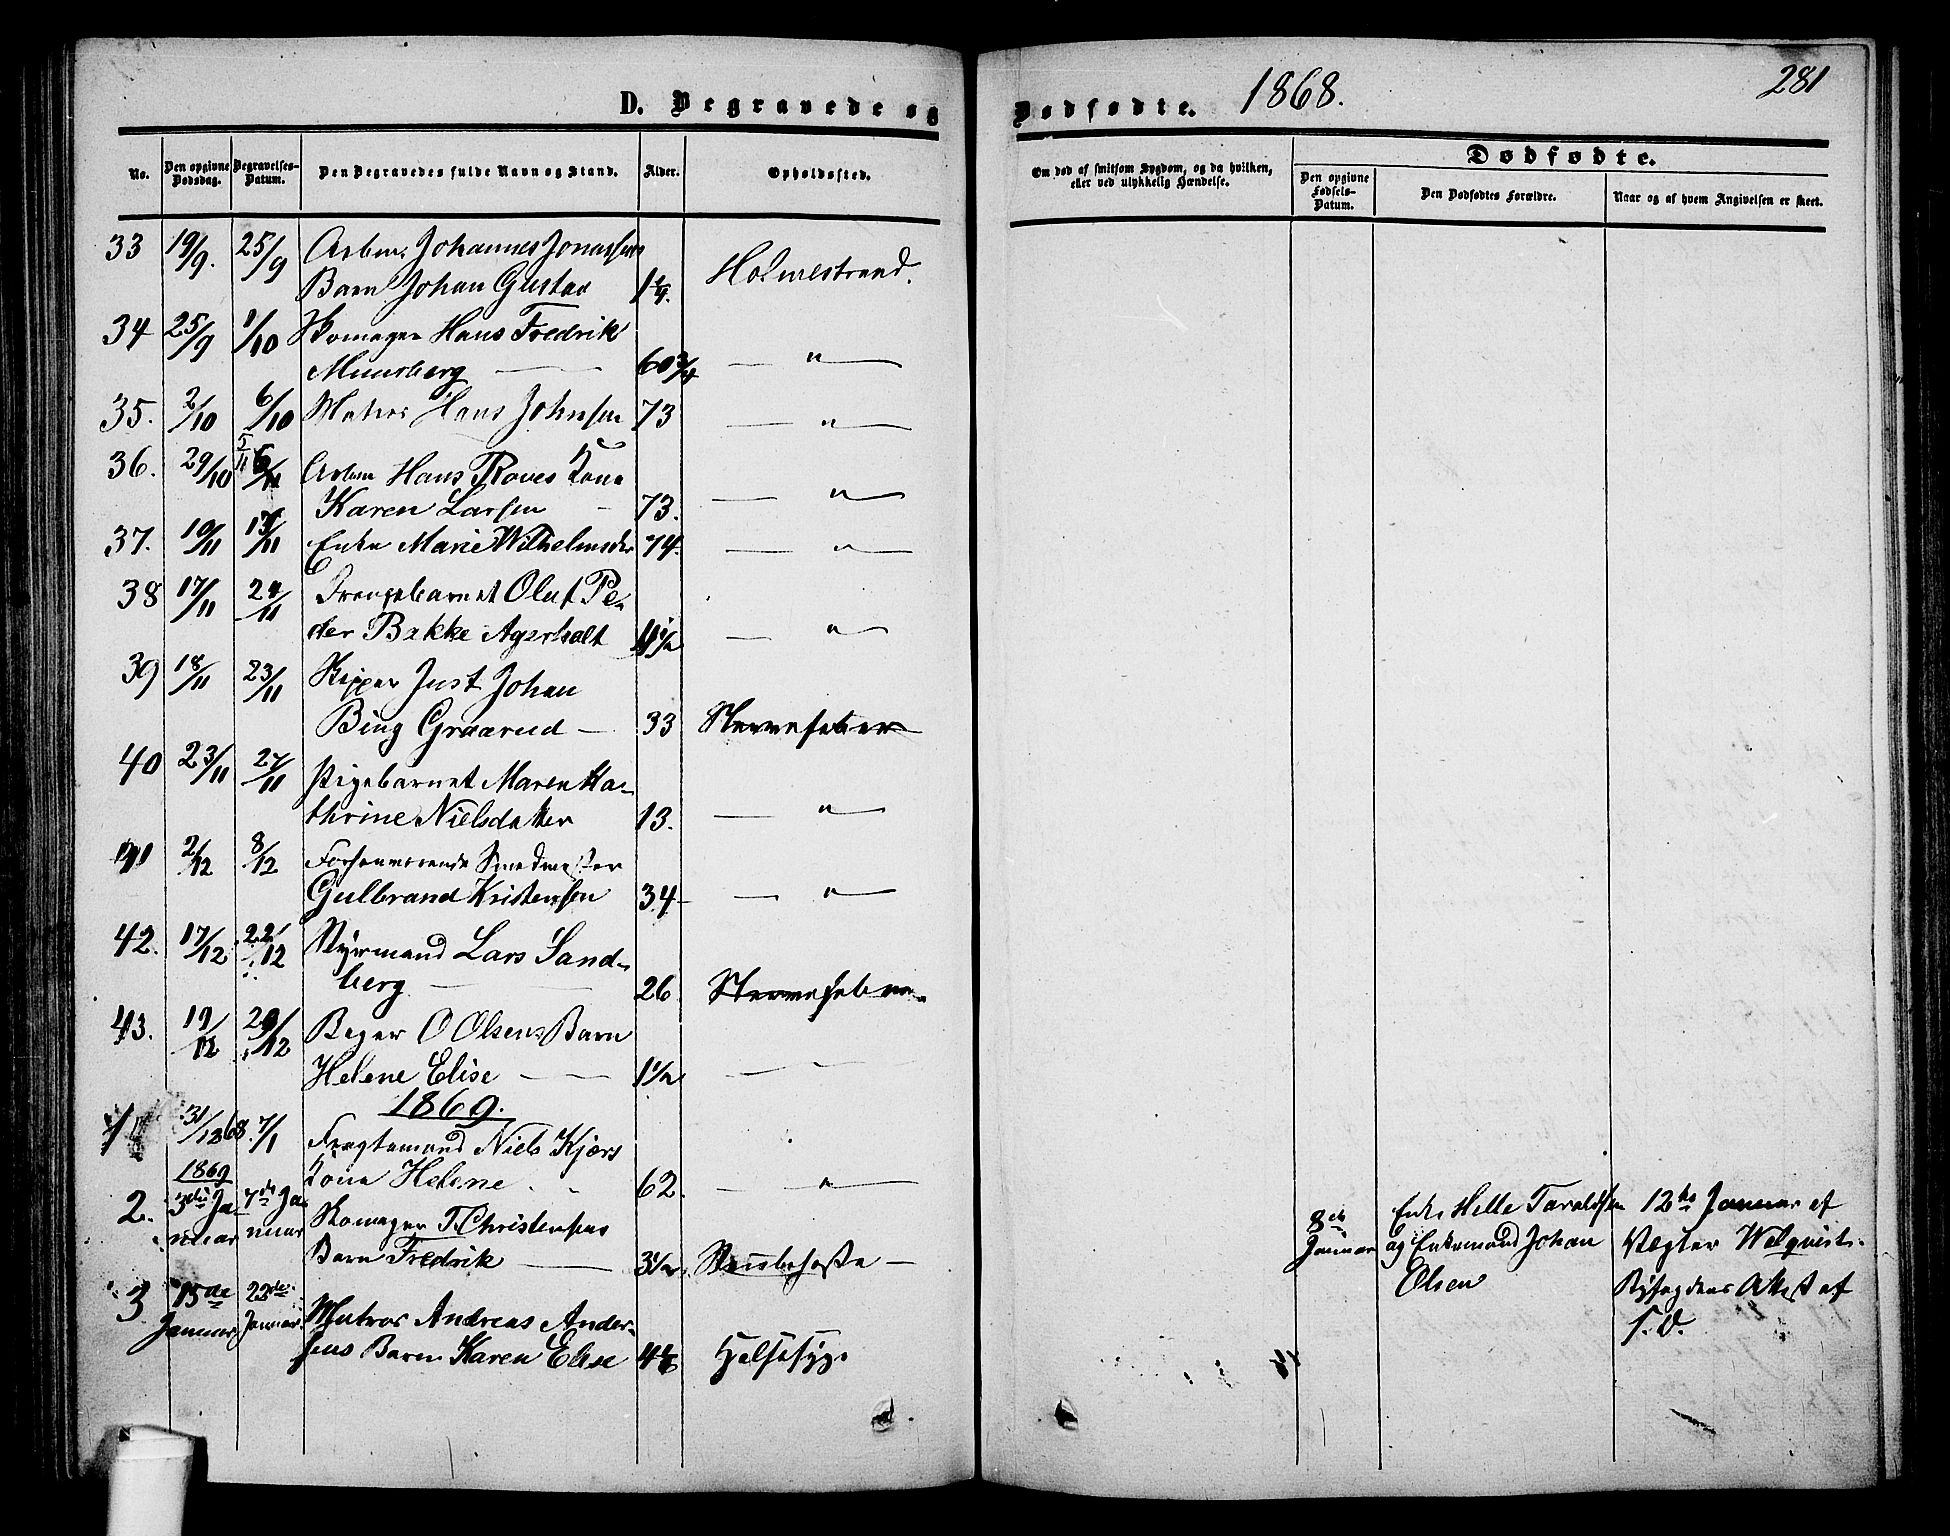 D. Begravede og
No.
Den opgivne Dødsdag.
Begravelses-Datum.
Den Begravedes fulde Navn og Stand.
Alder.
Opholdssted.
33 19/9. 25/9 Arbm. Johannes Jonassens
Barn Johan Gustav Holmestrand.
34 25/9 1/10 Skomager Hans Fredrik
60 3/4 — " —
35. 2/10 6/10 Matros Hans Johnsen 73 — " —
36. 29/10 Arbm Hans Roves Kone
Karen Larsen — 73. — " —
37. 10/11 Enke Marie Wilhelmsdtr 74 — " —
38 17/11 24/11 Drengebarnet Oluf Pe-
der Bakke Agerholt — " —
39 18/11 23/11 Skipper Just Johan
Bing Graarud — 33
40 23/11 27/11 Pigebarnet Maren Ka-
thrine Nielsdatter 13. — " —
41 2/12 8/12 Forhenværende Smedmester
Gulbrand Kristensen 34 — " —
42. 17/12 22/12 Styrmand Lars Sand-
berg — 26
43. 19/12 29/12 O Olsens Barn
Helene Elise — 1 1/2 — —
1869.
1 31/12 68. 7/1 Fragtemand Niels Kjærs
Kone Helene 62. — " —
1869
2. 3die Ja- 7de Ja-
nuar nuar Skomager T. Christensens
Barn Fredrik — 3 1/2 Strubehoste —
3 15de 22de
Januar Januar Matros Andreas Ander-
sens Barn Karen Elise Halssyge
Dødfødte. 1868. 281
Om død af smitsom Sygdom, og da hvilken,
eller ved ulykkelig Hændelse.
Dødfødte.
Den opgivne Fødsels-Datum.
Den Dødfødtes Forældre.
Naar og af hvem Angivelsen er skeet.
8de Enke Helle Taraldsen 12te Januar af
Januar og Enkemand Johan Vægter Welqvist.
Olsen Byfogdens Attest af
S. D.